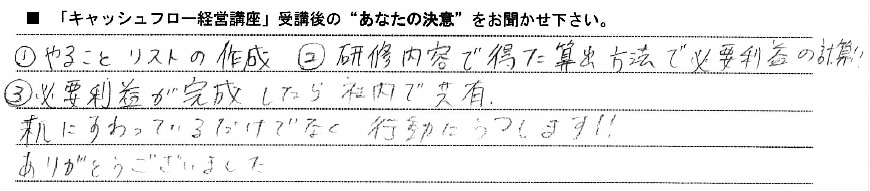 ■ 「キャッシュフロー経営講座」受講後の“あなたの決意”をお聞かせ下さい。
①やることリストの作成 ②研修内容で得た算出方法で必要利益の計算!!
③必要利益が完成したら社内で共有.
机にすわっているだけでなく 行動にうつします!!
ありがとうございました